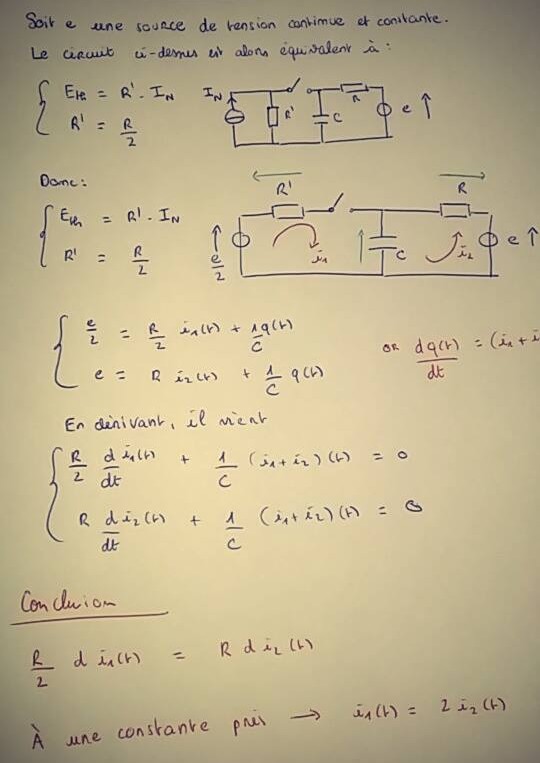 Soit e une source de tension continue et constante.
Le circuit ci-dessus est alors équivalent à :
Eth = R' . IN
R' = R/2
IN R' C R e
Donc :
Eth = R' . IN
R' = R/2
R' R
e/2 i1 C i2 e
e/2 = R/2 i1(t) + 1/C q(t)
e = R i2(t) + 1/C q(t)
OR dq(t)/dt = (i1 + i
En dérivant, il vient
R/2 d/dt i1(t) + 1/C (i1+i2)(t) = 0
R d/dt i2(t) + 1/C (i1+i2)(t) = 0
Conclusion
R/2 d i1(t) = R d i2(t)
À une constante près → i1(t) = 2 i2(t)